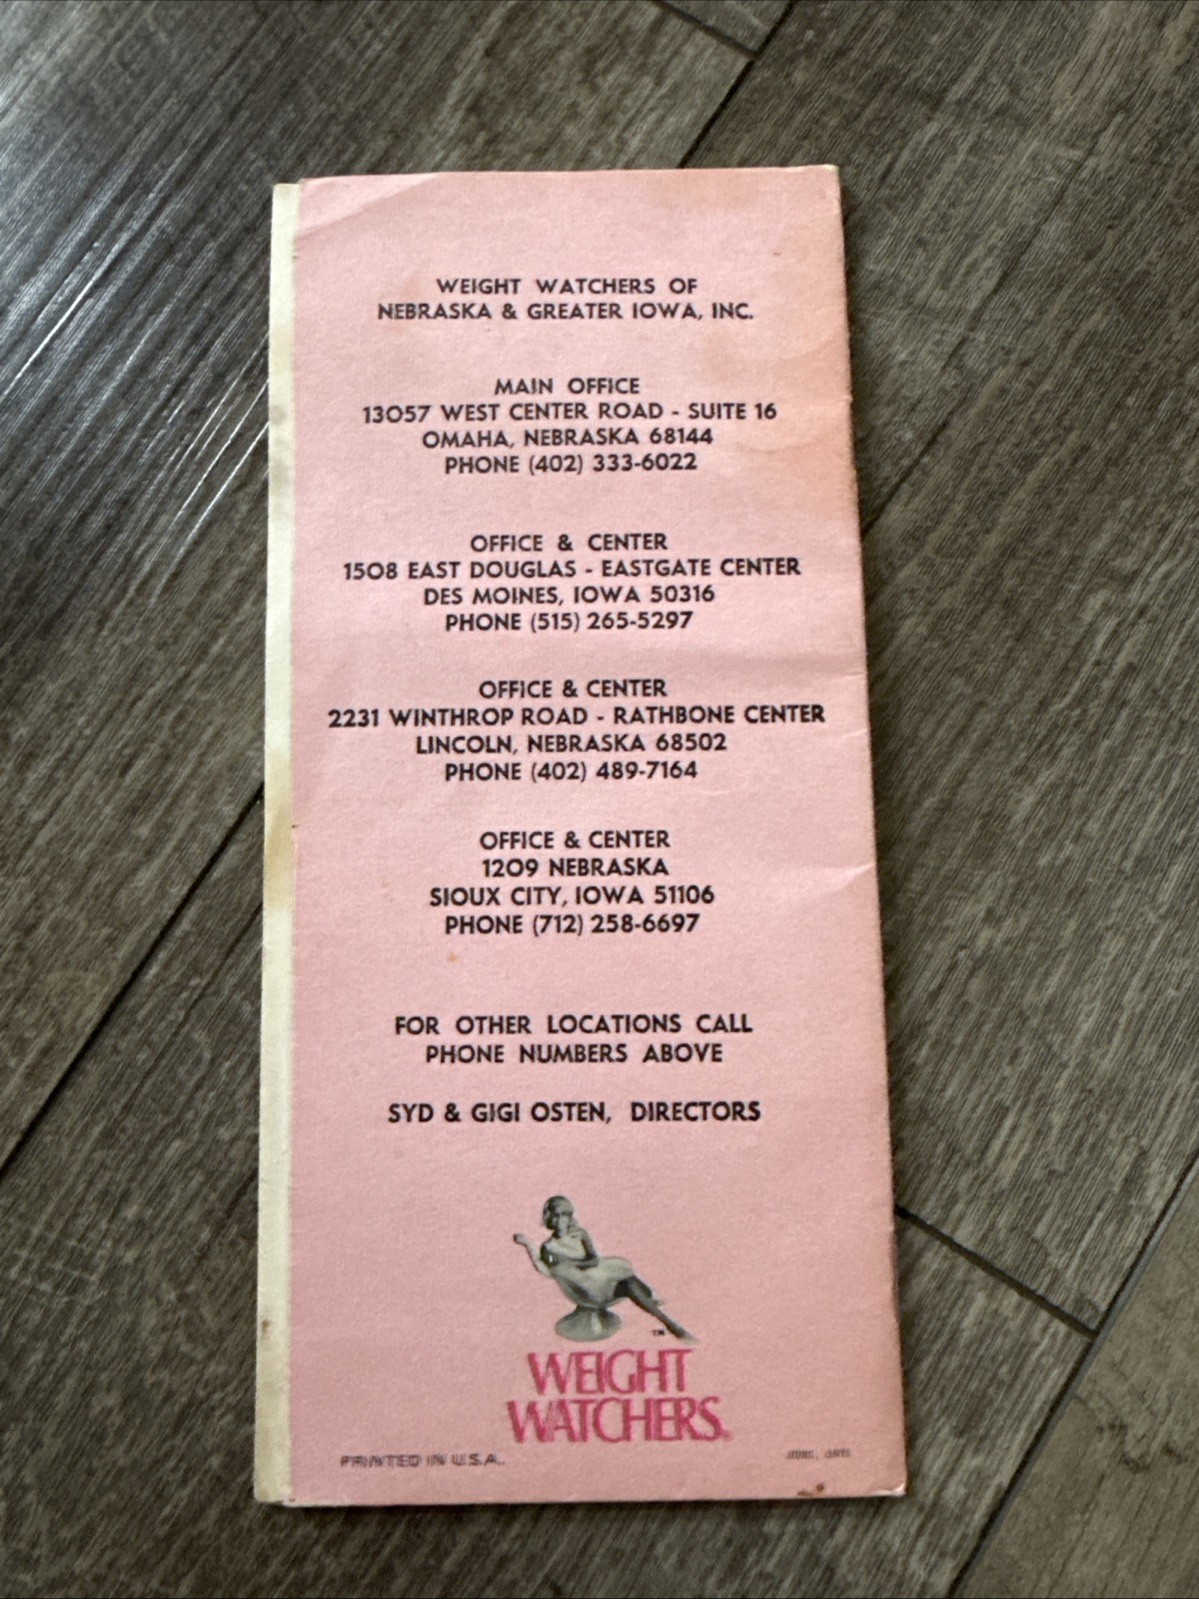 WEIGHT WATCHERS OF
NEBRASKA & GREATER IOWA, INC.
MAIN OFFICE
13057 WEST CENTER ROAD - SUITE 16
OMAHA, NEBRASKA 68144
PHONE (402) 333-6022
OFFICE & CENTER
1508 EAST DOUGLAS - EASTGATE CENTER
DES MOINES, IOWA 50316
PHONE (515) 265-5297
OFFICE & CENTER
2231 WINTHROP ROAD - RATHBONE CENTER
LINCOLN, NEBRASKA 68502
PHONE (402) 489-7164
OFFICE & CENTER
1209 NEBRASKA
SIOUX CITY, IOWA 51106
PHONE (712) 258-6697
FOR OTHER LOCATIONS CALL
PHONE NUMBERS ABOVE
SYD & GIGI OSTEN, DIRECTORS
TM
WEIGHT
WATCHERS®
PRINTED IN U.S.A.
JUNE,